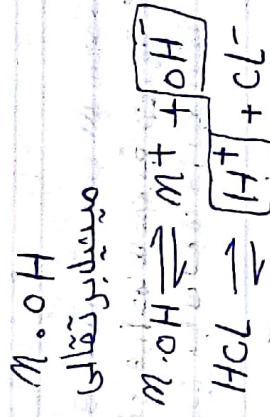 M.OH
ميثيل برتقالى
M.OH ⇌ M+ + OH-
HCL ⇌ H+ + CL-